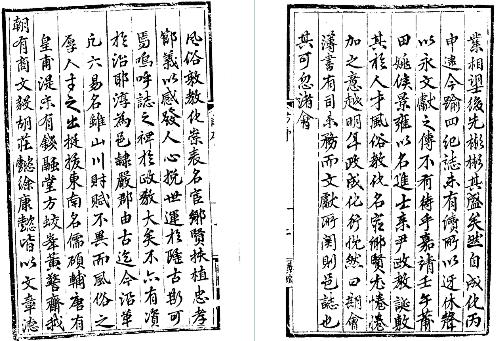 風俗敦教化崇表名宦鄉賢扶植忠孝
節義以感發人心挽世運於隆古斯可
焉嗚呼誌之裨於政教大矣不亦有資
於治耶淳為邑隸嚴郡由古迄今沿革
凡六易名雖山川財賦不異而風俗之
厚人生之出挺拔東南名儒碩輔唐有
皇甫湜宋有錢融堂方蛟峯黃警齋我
朝有商文毅胡莊懿徐康懿皆以文章德
業相望後先彬彬其盛矣然自成化丙
申迄今踰四紀誌未有續所以迓休
以永文獻之傳不有待乎嘉靖壬午莆
田姚侯景雍以名進士來尹政教誕敷
其於人才風俗教化名宦鄉賢尤惓惓
加之意越明年政成化行恍然曰期會
簿書有司末務而文獻所關則邑誌也
其可忽諸會